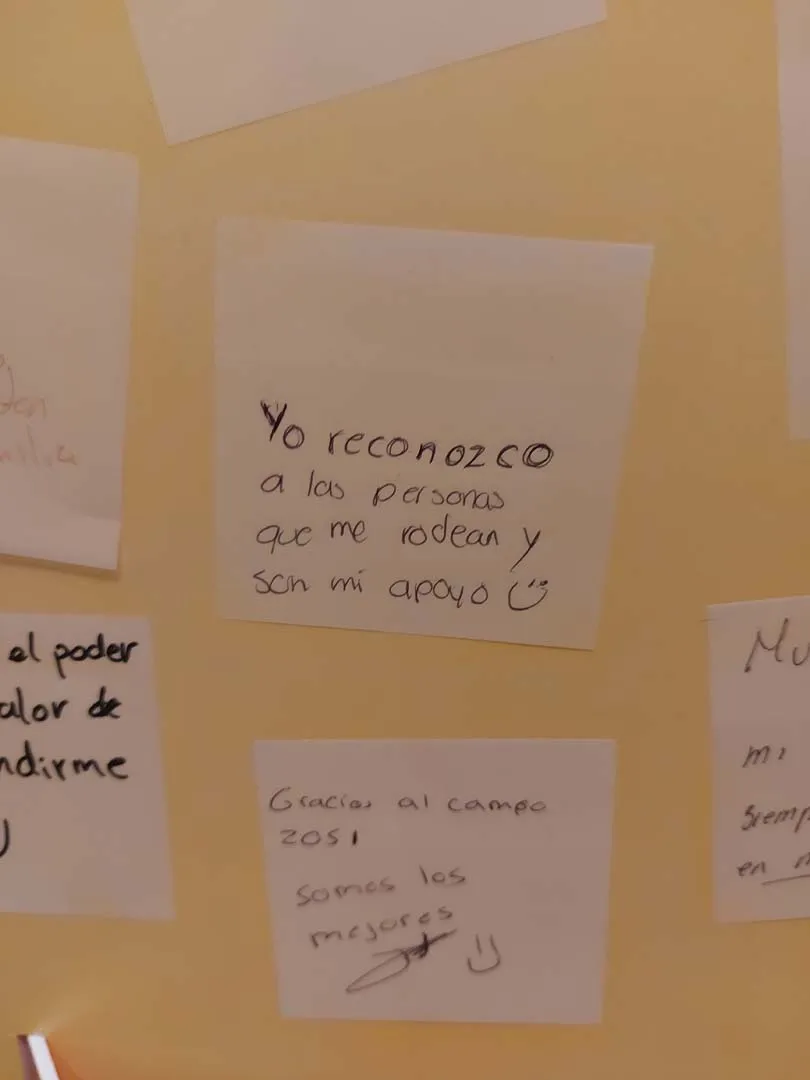 Yo reconozco
a las personas
que me rodean y
son mi apoyo
el poder
alor de
ndirme
Gracias al campo
2051
somos los
mejores
Mu
mi
siemp
en